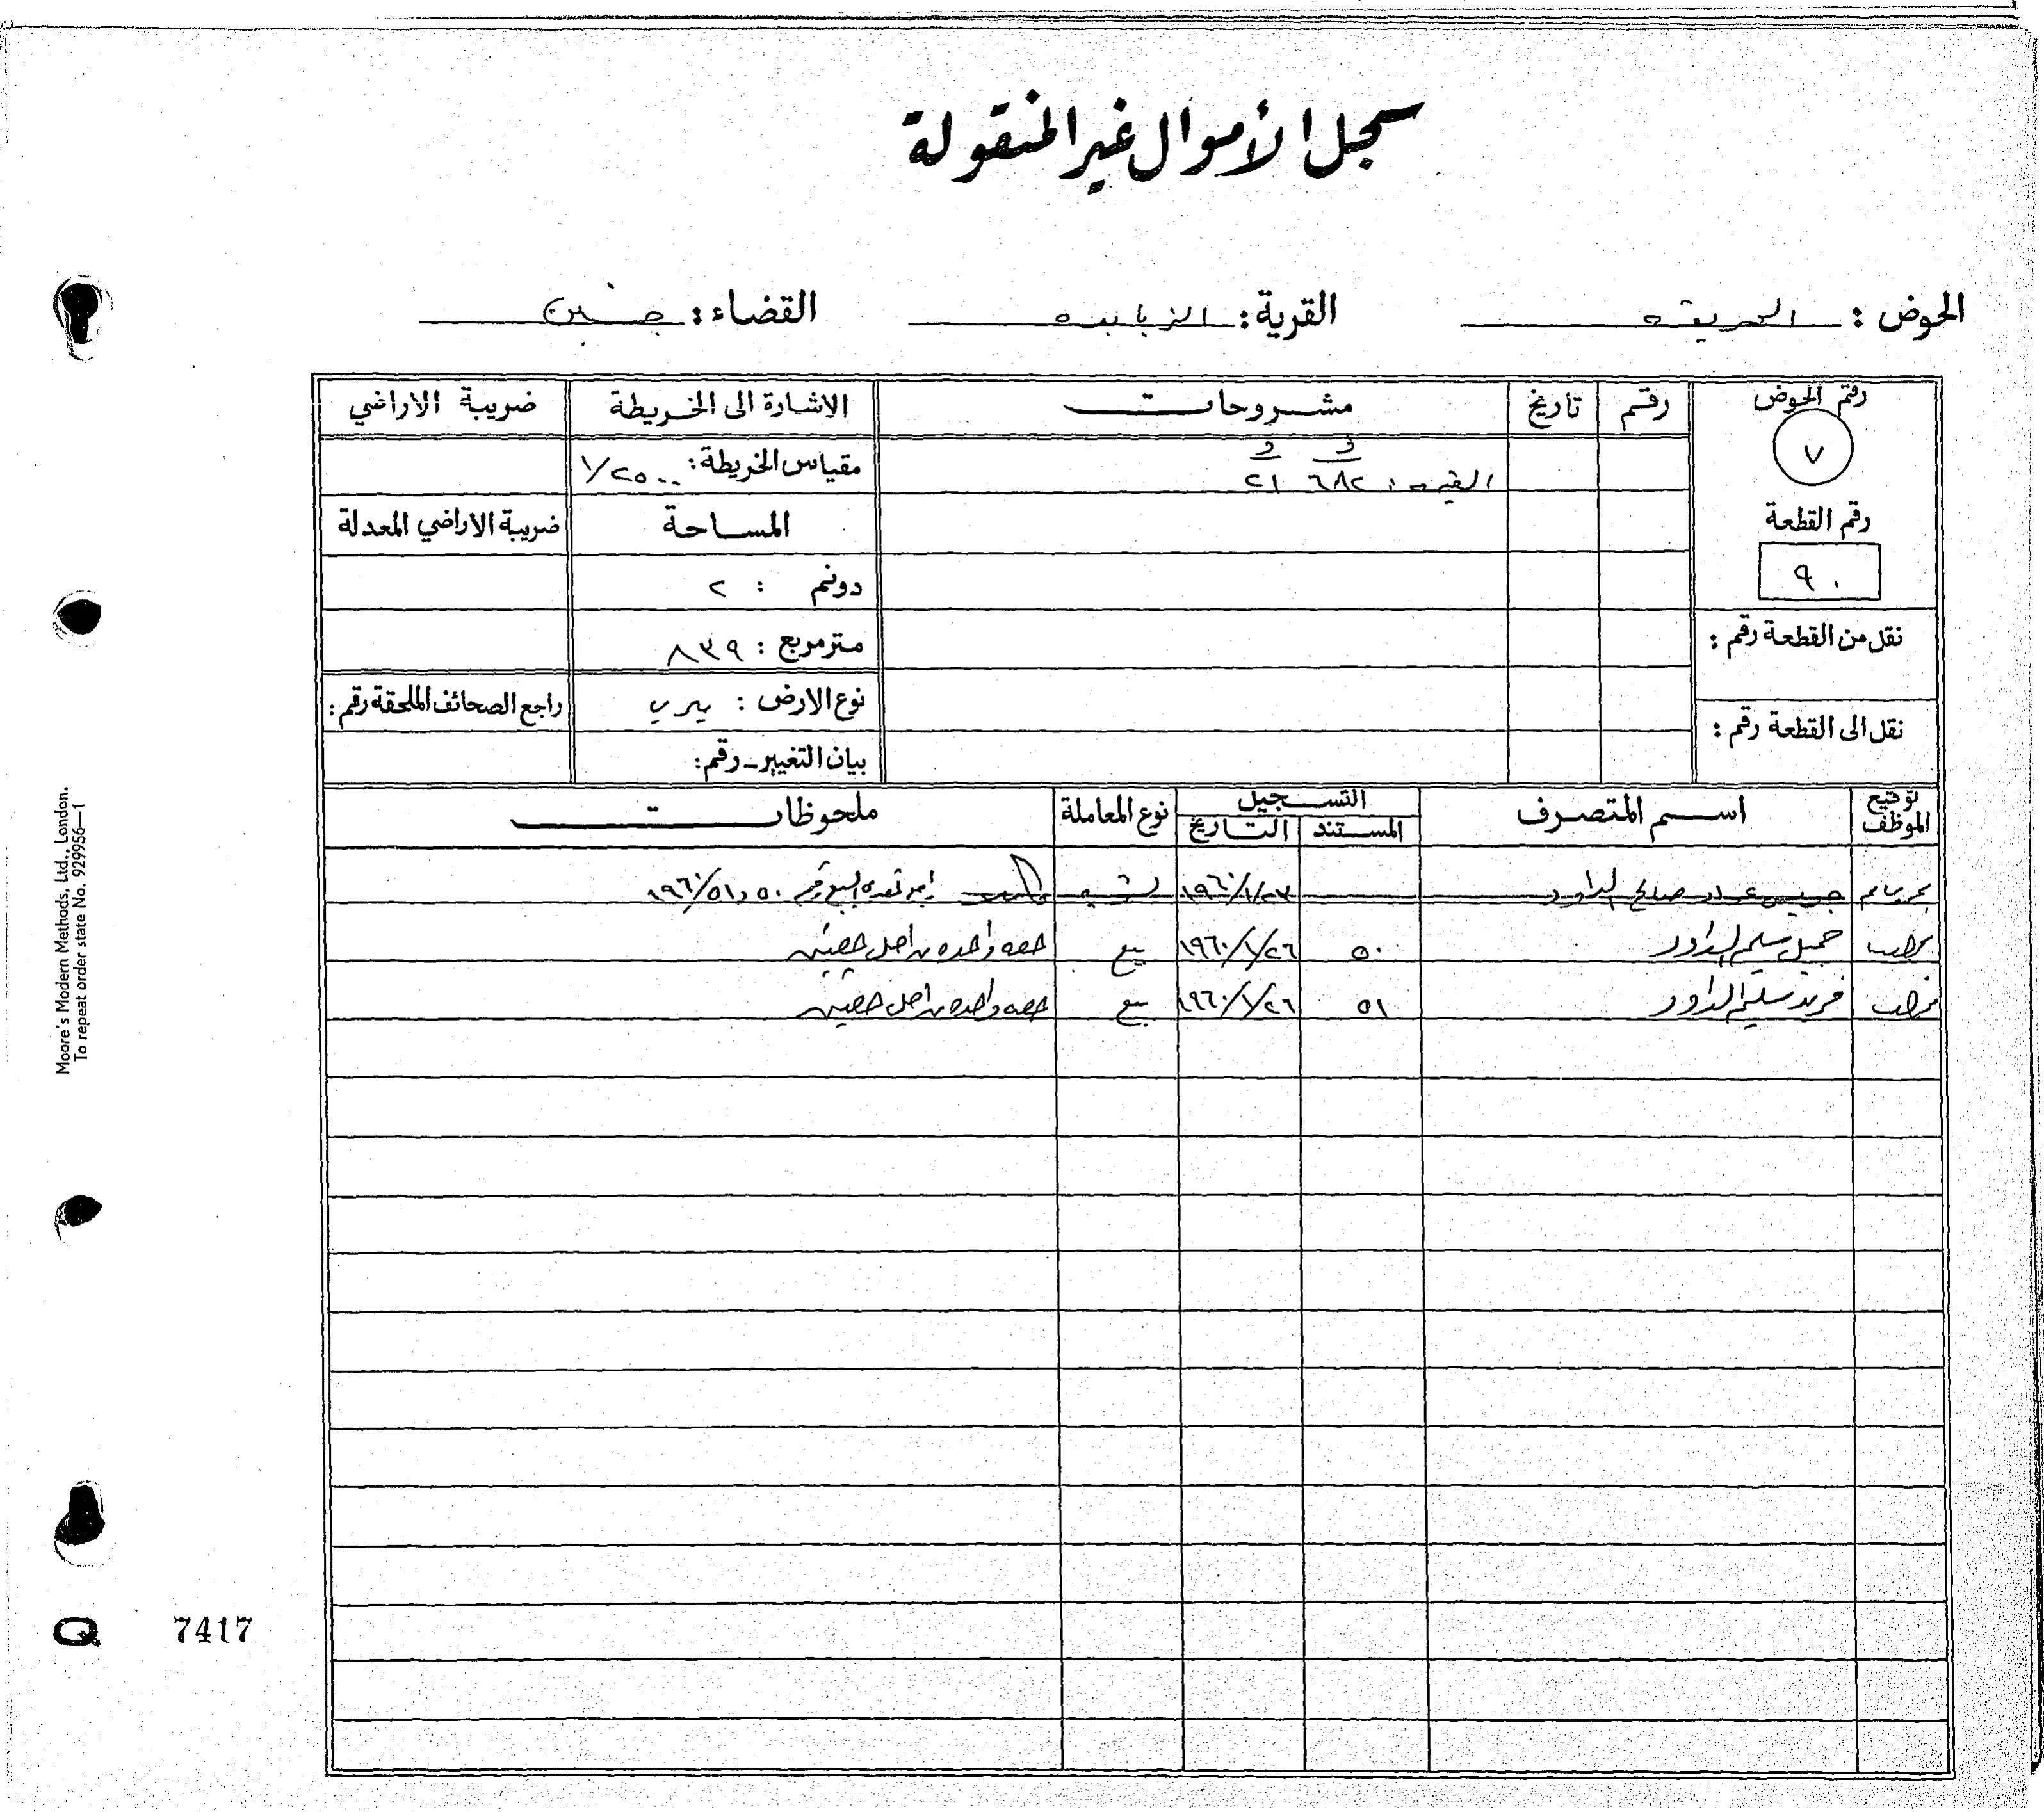 سجل الأموال غير المنقولة
الحوض : الحريقه القرية : الزبابده القضاء : جنين
رقم الحوض رقم تاريخ مشروحات الاشارة الى الخريطة ضريبة الاراضي
٧
ف و
القيمه : ٦٨٢ ٢١
مقياس الخريطة : ١/٢٥٠٠
رقم القطعة المساحة ضريبة الاراضي المعدلة
٩٠ دونم : ٢
نقل من القطعة رقم : متر مربع : ٨٣٩
نوع الارض : ميري راجع الصحائف الملحقة رقم :
نقل الى القطعة رقم : بيان التغيير - رقم :
توقيع الموظف اسم المتصرف التسجيل نوع المعاملة ملحوظات
المستند التاريخ
صالح الداود ١٩٦٠/١/٢٣ ٥٠ و ٥١/١٩٦٠
جميل سليم الداود ٥٠ ١٩٦٠/١/٢٦ بيع حصه واحده من اصل حصتين
فريد سليم الداود ٥١ ١٩٦٠/١/٢٦ بيع حصه واحده من اصل حصتين
Moore's Modern Methods, Ltd., London.
To repeat order state No. 929956—1
Q 7417